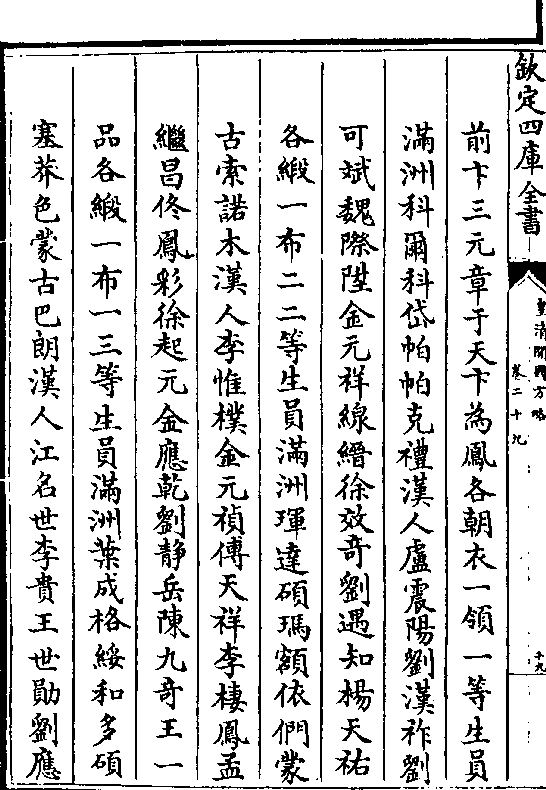 欽定四庫全書
皇清開國方略
卷二十九
十九
前卞三元章于天卞為鳳各朝衣一領一等生員
滿洲科爾科岱帕帕克禮漢人盧震陽劉漢祚劉
可斌魏際陞金元祥線縉徐效奇劉遇知楊天祐
各緞一布二二等生員滿洲琿達碩瑪額依們蒙
古索諾木漢人李惟樸金元禎傅天祥李棲鳳孟
繼昌佟鳳彩徐起元金應乾劉靜岳陳九奇王一
品各緞一布一三等生員滿洲葉成格綏和多碩
塞莽色蒙古巴朗漢人江名世李貴王世勛劉應